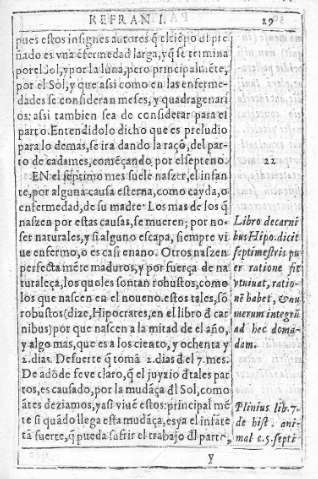 REFRAN I. 29
pues estos insignes autores q̃ el tiẽpo del pre
ñado es vna ẽfermedad larga, y q̃ se termina
por el Sol, y por la luna, pero principalmẽte,
por el Sol, y que assi como en las enferme-
dades se consideran meses, y quadragenari
os: assi tambien sea de considerar para el
parto. Entendidolo dicho que es preludio
para lo demas, se ira dando la razõ, del par-
to de cada mes, començando, por el septeno.
22
EN el septimo mes suele naszer, el infan
te, por alguna causa esterna, como cayda, o
enfermedad, de su madre. Los mas de los q̃
naszen por estas causas, se mueren; por no
ses naturales, y si alguno escapa, siempre vi
ue enfermo, o es casi enano. Otros naszen
perfectamẽte maduros, y por fuerça de na
turaleça, los quoles sontan robustos, como
los que nascen en el noueno. estos tales, só
robustos (dize, Hipocrates, en el libro đ car
nibus) por que nascen a la mitad de el año,
y algo mas, que es a los ciento, y ochenta y
2. dias. De suerte q̃ tomã 2. dias đel 7. mes.
De adõde se ve claro, q̃ el juyzio đ tales par
tos, es causado, por la mudãça đl Sol, como
ãtes deziamos, y asi viuẽ estos: principal mẽ
te si quãdo llega esta mudãça, es ya el infan
tã fuerte, q̃ pueda sufrir el trabajo đl parto,
Libro de carni
bus Hipo. dicit
septimestris pu
er ratione fit
& viuat, ratio-
nẽ habet, & nu
merum integrũ
ad hec domã-
dam.
Plinius lib. 7.
de hist. ani-
mal c. 5. septi
y